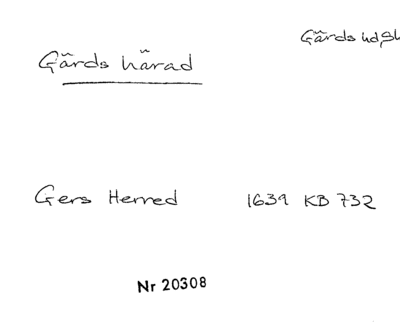 Gärds hdSk
Gärds härad
Gers Herred 1639 KB 732
Nr 20308